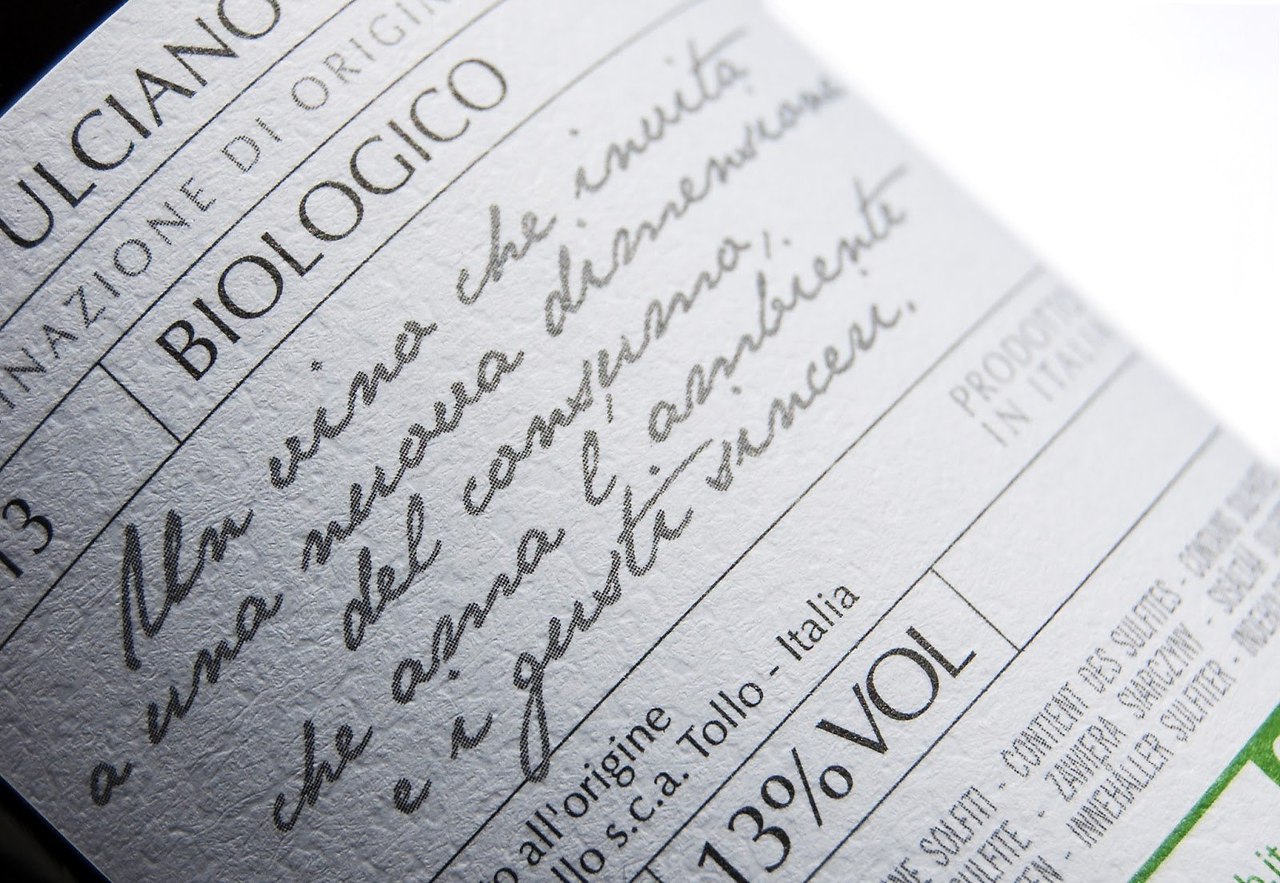 ULCIANO
NAZIONE DI ORIGIN
13
BIOLOGICO
Un vino che invita
a una nuova dimensione
del consumo,
che ama l'ambiente
e i gusti sinceri.
PRODOTTO
IN ITALIA
o all'origine
llo s.c.a. Tollo - Italia
13% VOL
NE SOLFITI - CONTIENT DES SULFITES - CONTAINS
SULFITE - ZAWIERA SIARCZYNY -
EN - INNEHÅLLER SULFITER -
b.it